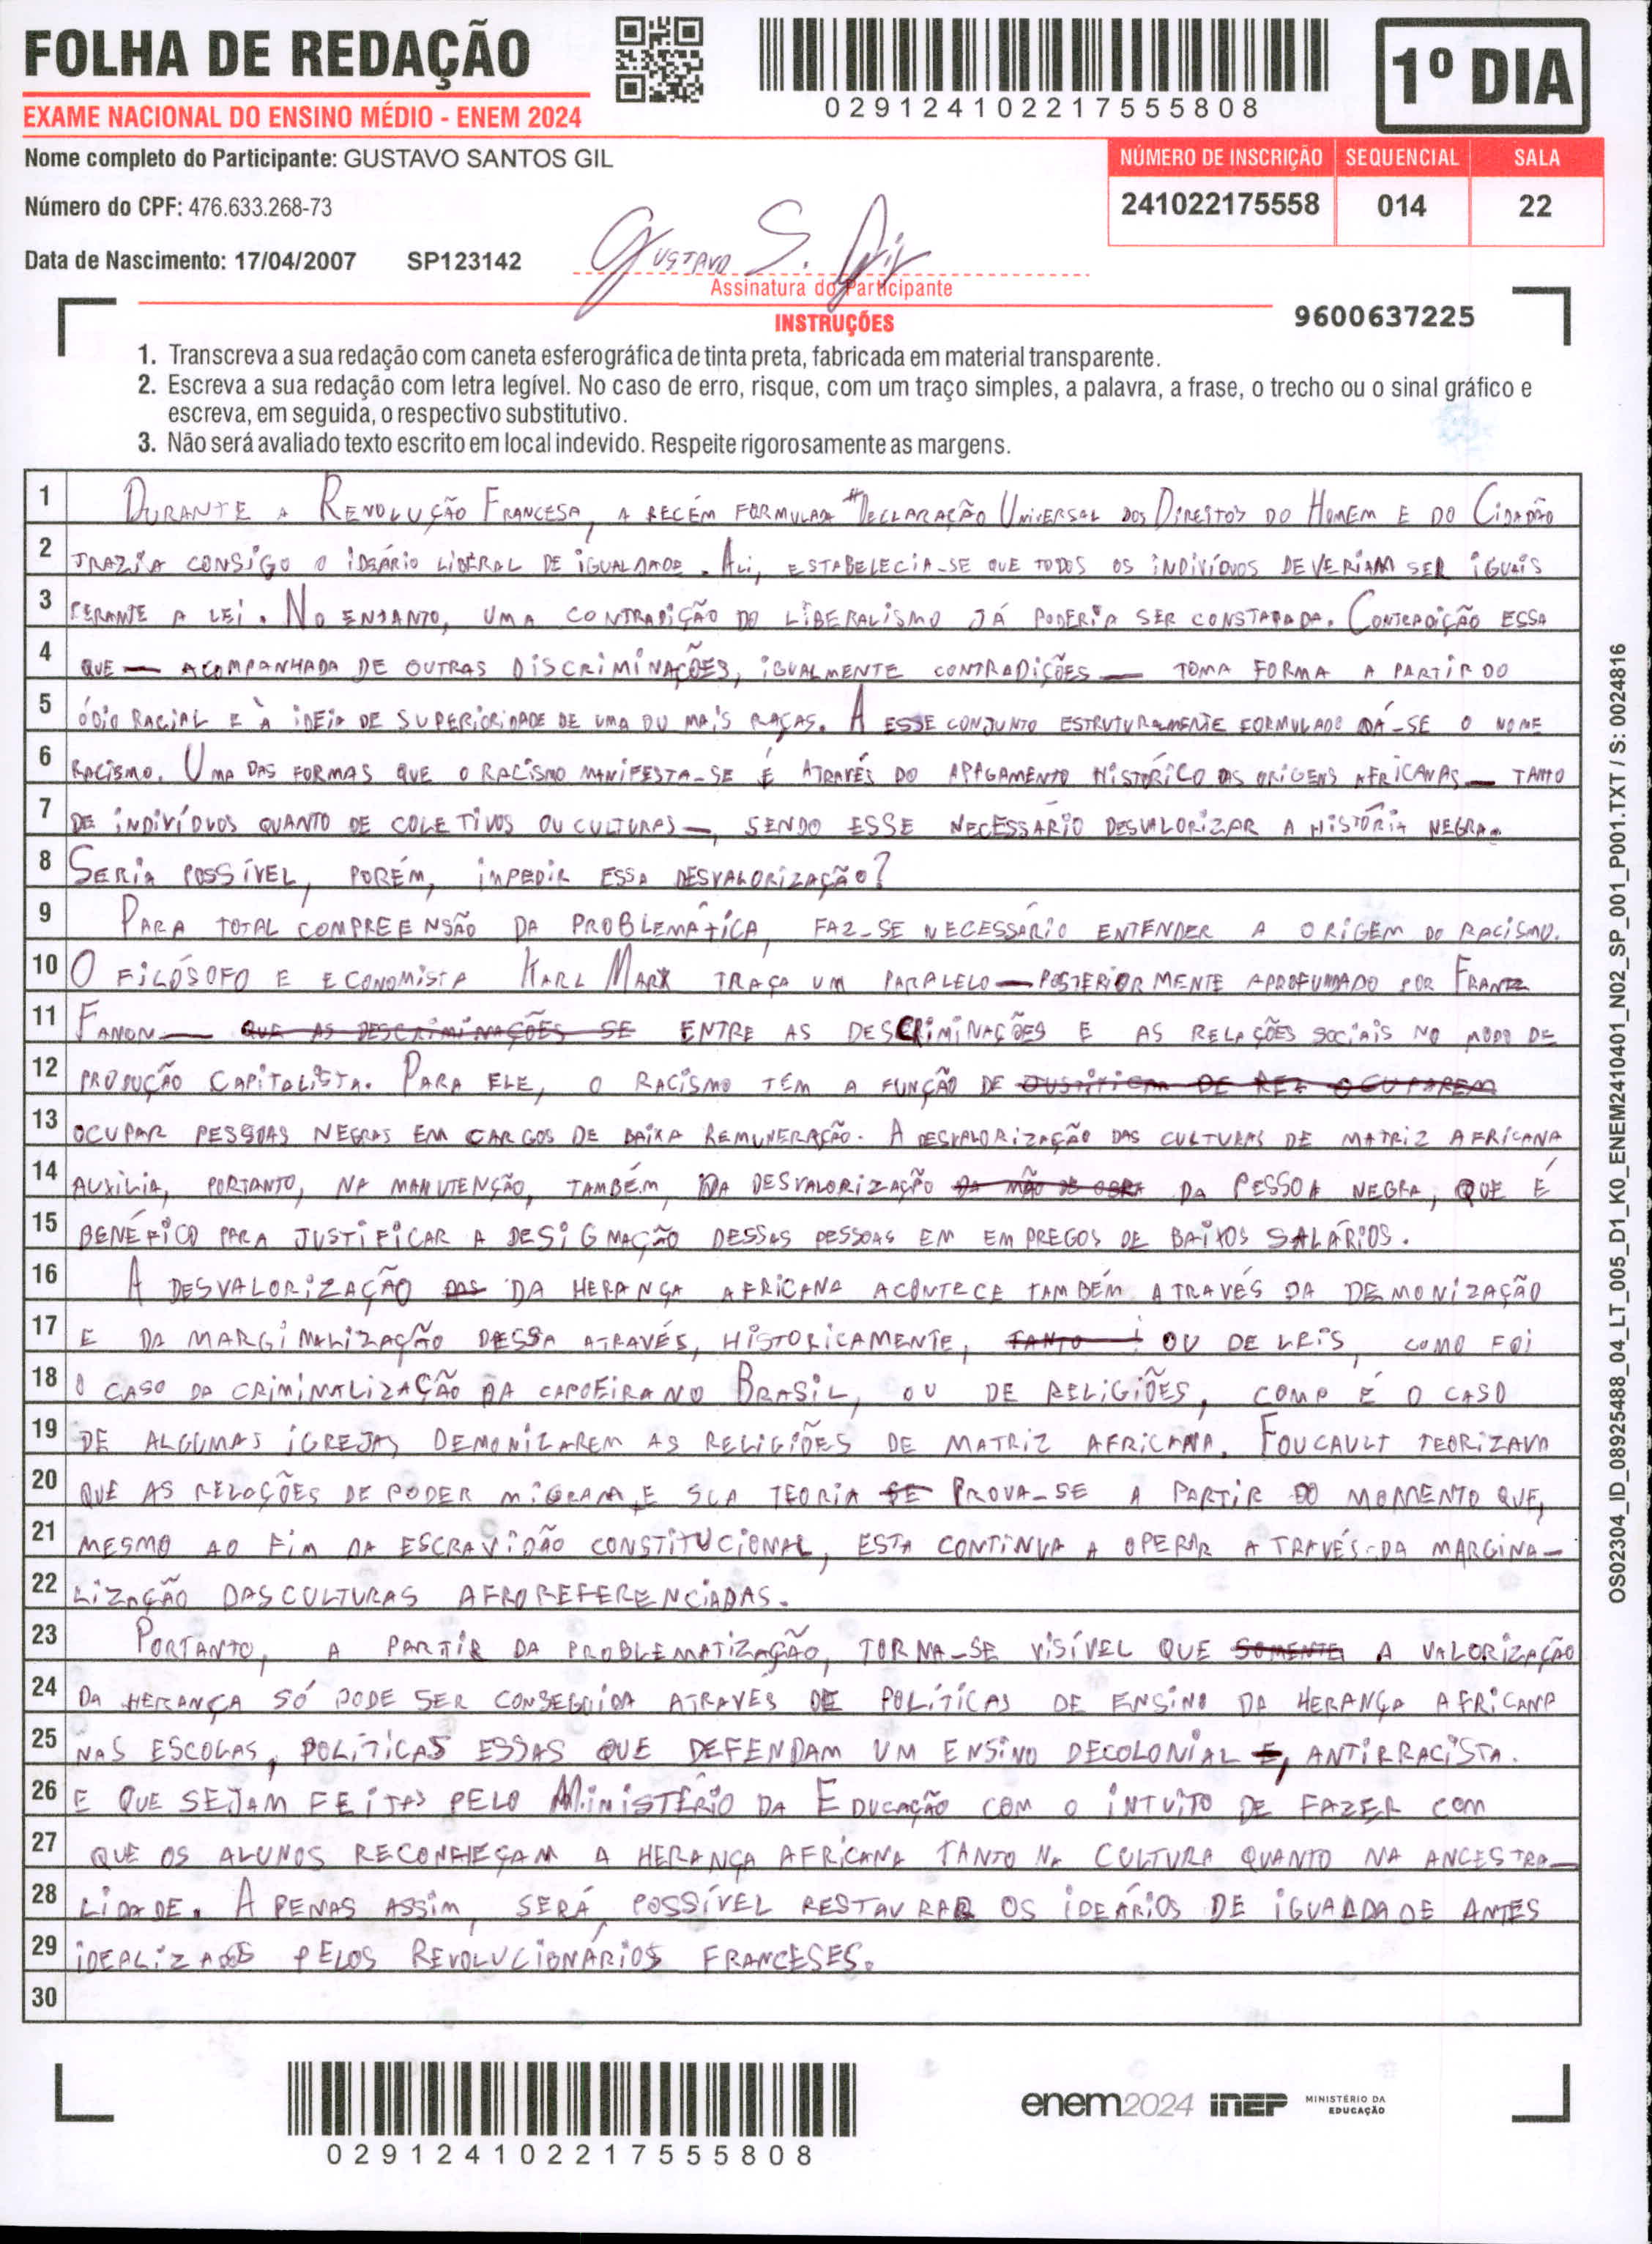 FOLHA DE REDAÇÃO
EXAME NACIONAL DO ENSINO MÉDIO - ENEM 2024
029124102217555808
1º DIA
Nome completo do Participante: GUSTAVO SANTOS GIL
Número do CPF: 476.633.268-73
Data de Nascimento: 17/04/2007 SP123142
NÚMERO DE INSCRIÇÃO SEQUENCIAL SALA
241022175558 014 22
GUSTAVO S. Gil
Assinatura do Participante
INSTRUÇÕES
9600637225
1. Transcreva a sua redação com caneta esferográfica de tinta preta, fabricada em material transparente.
2. Escreva a sua redação com letra legível. No caso de erro, risque, com um traço simples, a palavra, a frase, o trecho ou o sinal gráfico e
escreva, em seguida, o respectivo substitutivo.
3. Não será avaliado texto escrito em local indevido. Respeite rigorosamente as margens.
1 DURANTE A REVOLUÇÃO FRANCESA, A RECÉM FORMULADA "DECLARAÇÃO UNIVERSAL DOS DIREITOS DO HOMEM E DO CIDADÃO
2 TRAZIA CONSIGO O IDEÁRIO LIBERAL DE IGUALDADE. ALI, ESTABELECIA-SE QUE TODOS OS INDIVÍDUOS DEVERIAM SER IGUAIS
3 PERANTE A LEI. NO ENTANTO, UMA CONTRADIÇÃO DO LIBERALISMO JÁ PODERIA SER CONSTATADA. CONTRADIÇÃO ESSA
4 QUE — ACOMPANHADA DE OUTRAS DISCRIMINAÇÕES, IGUALMENTE CONTRADIÇÕES — TOMA FORMA A PARTIR DO
5 ÓDIO RACIAL E À IDEIA DE SUPERIORIDADE DE UMA OU MAIS RAÇAS. A ESSE CONJUNTO ESTRUTURALMENTE FORMULADO DÁ-SE O NOME
6 RACISMO. UMA DAS FORMAS QUE O RACISMO MANIFESTA-SE É ATRAVÉS DO APAGAMENTO HISTÓRICO DAS ORIGENS AFRICANAS — TANTO
7 DE INDIVÍDUOS QUANTO DE COLETIVOS OU CULTURAS —, SENDO ESSE NECESSÁRIO DESVALORIZAR A HISTÓRIA NEGRA.
8 SERIA POSSÍVEL, PORÉM, IMPEDIR ESSA DESVALORIZAÇÃO?
9 PARA TOTAL COMPREENSÃO DA PROBLEMÁTICA, FAZ-SE NECESSÁRIO ENTENDER A ORIGEM DO RACISMO.
10 O FILÓSOFO E ECONOMISTA KARL MARX TRAÇA UM PARALELO — POSTERIORMENTE APROFUNDADO POR FRANTZ
11 FANON — QUE AS DESCRIMINAÇÕES SE ENTRE AS DESCRIMINAÇÕES E AS RELAÇÕES SOCIAIS NO MODO DE
12 PRODUÇÃO CAPITALISTA. PARA ELE, O RACISMO TÊM A FUNÇÃO DE OCUPAREM
13 OCUPAR PESSOAS NEGRAS EM CARGOS DE BAIXA REMUNERAÇÃO. A DESVALORIZAÇÃO DAS CULTURAS DE MATRIZ AFRICANA
14 AUXILIA, PORTANTO, NA MANUTENÇÃO, TAMBÉM, DA DESVALORIZAÇÃO DA MÃO DE OBRA DA PESSOA NEGRA, QUE É
15 BENÉFICO PARA JUSTIFICAR A DESIGNAÇÃO DESSAS PESSOAS EM EMPREGOS DE BAIXOS SALÁRIOS.
16 A DESVALORIZAÇÃO DAS DA HERANÇA AFRICANA ACONTECE TAMBÉM ATRAVÉS DA DEMONIZAÇÃO
17 E DA MARGINALIZAÇÃO DESSA ATRAVÉS, HISTORICAMENTE, TANTO OU DE LEIS, COMO FOI
18 O CASO DA CRIMINALIZAÇÃO DA CAPOEIRA NO BRASIL, OU DE RELIGIÕES, COMO É O CASO
19 DE ALGUMAS IGREJAS DEMONIZAREM AS RELIGIÕES DE MATRIZ AFRICANA. FOUCAULT TEORIZAVA
20 QUE AS RELAÇÕES DE PODER MIGRAM, E SUA TEORIA SE PROVA-SE A PARTIR DO MOMENTO QUE,
21 MESMO AO FIM DA ESCRAVIDÃO CONSTITUCIONAL, ESTA CONTINUA A OPERAR ATRAVÉS DA MARGINA-
22 LIZAÇÃO DAS CULTURAS AFROREFERENCIADAS.
23 PORTANTO, A PARTIR DA PROBLEMATIZAÇÃO, TORNA-SE VISÍVEL QUE SOMENTE A VALORIZAÇÃO
24 DA HERANÇA SÓ PODE SER CONSEGUIDA ATRAVES DE POLÍTICAS DE ENSINO DA HERANÇA AFRICANA
25 NAS ESCOLAS, POLÍTICAS ESSAS QUE DEFENDAM UM ENSINO DECOLONIAL E, ANTIRRACISTA.
26 E QUE SEJAM FEITAS PELO MINISTÉRIO DA EDUCAÇÃO COM O INTUITO DE FAZER COM
27 QUE OS ALUNOS RECONHEÇAM A HERANÇA AFRICANA TANTO NA CULTURA QUANTO NA ANCESTRA-
28 LIDADE. APENAS ASSIM, SERÁ POSSÍVEL RESTAURAR OS IDEÁRIOS DE IGUALDADE ANTES
29 IDEALIZADOS PELOS REVOLUCIONÁRIOS FRANCESES.
30
029124102217555808
enem2024 inep MINISTÉRIO DA
EDUCAÇÃO
OS02304_ID_08925488_04_LT_005_D1_K0_ENEM2410401_N02_SP_001_P001.TXT / S: 0024816